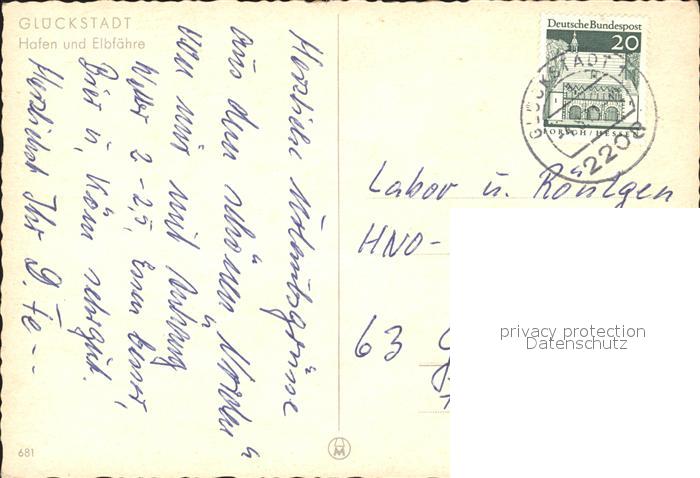 GLÜCKSTADT
Hafen und Elbfähre
Herzliche Urlaubsgrüsse
aus dem schönen „Norden"
von mir mit Anhang
Wetter 2-2,5, Essen besser,
Bier u. Köm sehr gut.
Herzlichst Ihr D. Fe--
681
Deutsche Bundespost
20
LORSCH/HESSEN
GLÜCKSTADT
2208
Labor u. Röntgen
HNO-
63 G
privacy protection
Datenschutz